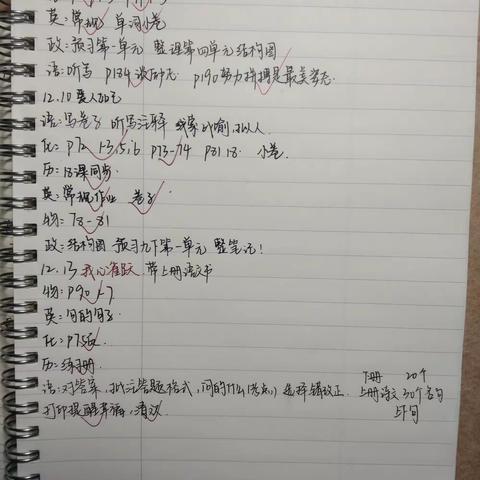 英:常规 单词小卷
政:预习第一单元 整理第四单元结构图
语:听写 p184 p190努力拼搏是最美姿态.
12.10
语:写卷子 听写注释 比喻,拟人
化:p72 1-3,5,6 p73-74 p81 18. 小卷.
历:18课同步.
英:常规作业 卷子
物:78-81
政:结构图 预习九下第一单元 整笔记!
12.13 带上册语文书
物:p90 1-7
英:句
化:p75
历:练习册.
下册 20个
语:对答案,批注答题格式,问的什么(考点) 选择错改正. 上册语文 30个名句
打印 上下句